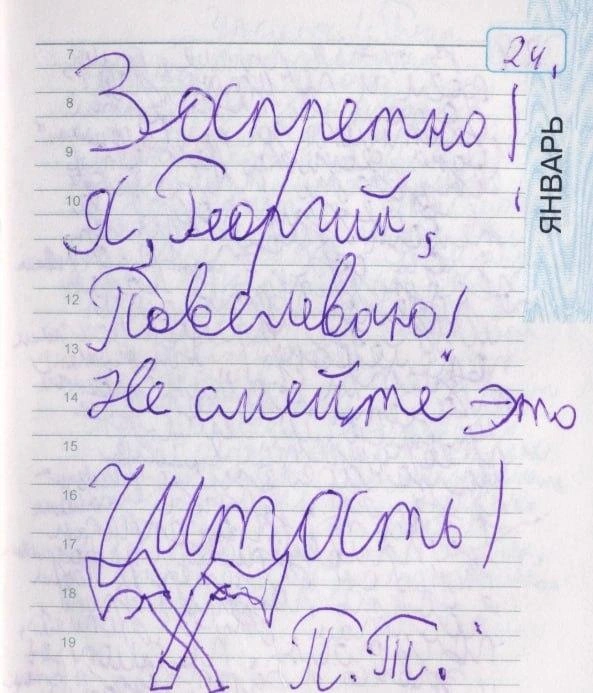 24.
ЯНВАРЬ
7
8
Запретно!
9
10
Я, Георгий,
12
Повелеваю!
13
14
Не смейте это
15
16
Читать!
17
18
19
П.Т.